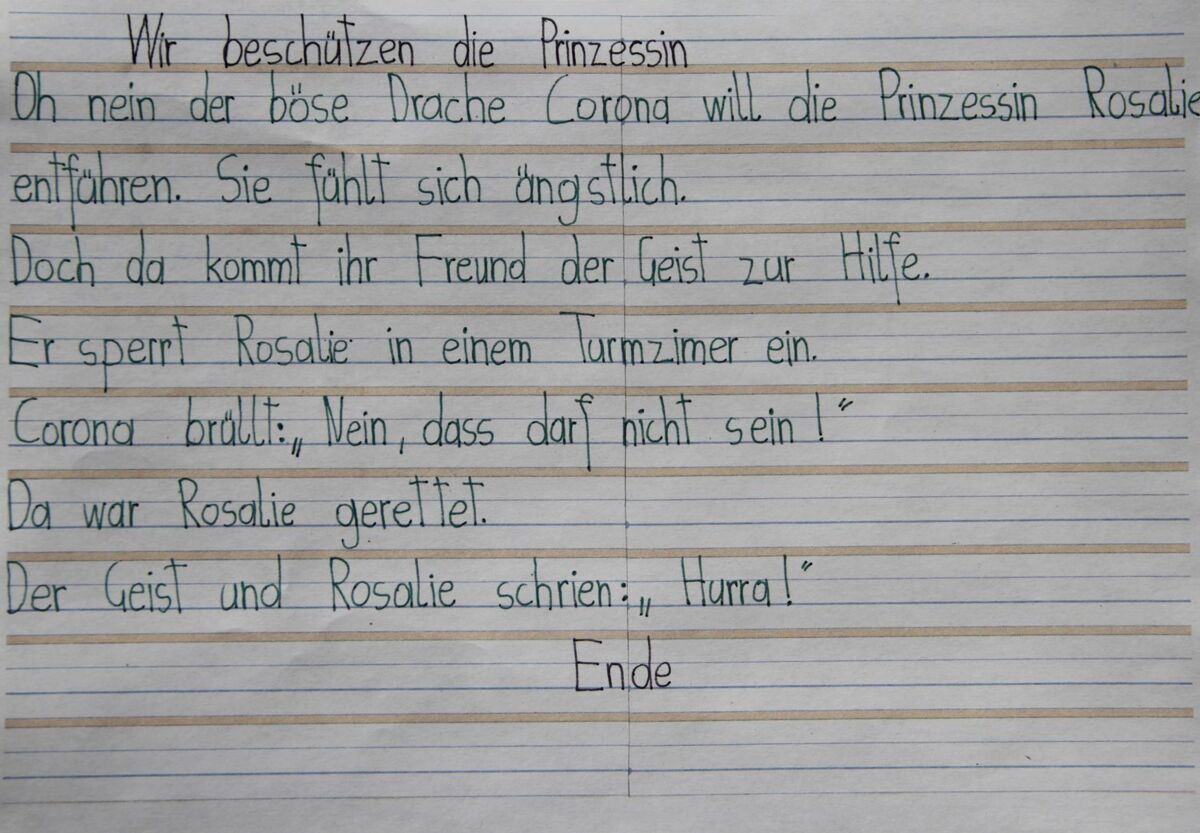 Wir beschützen die Prinzessin
Oh nein der böse Drache Corona will die Prinzessin Rosalie
entführen. Sie fühlt sich ängstlich.
Doch da kommt ihr Freund der Geist zur Hilfe.
Er sperrt Rosalie in einem Turmzimer ein.
Corona brüllt:„ Nein, dass darf nicht sein!“
Da war Rosalie gerettet.
Der Geist und Rosalie schrien:„ Hurra!“
Ende